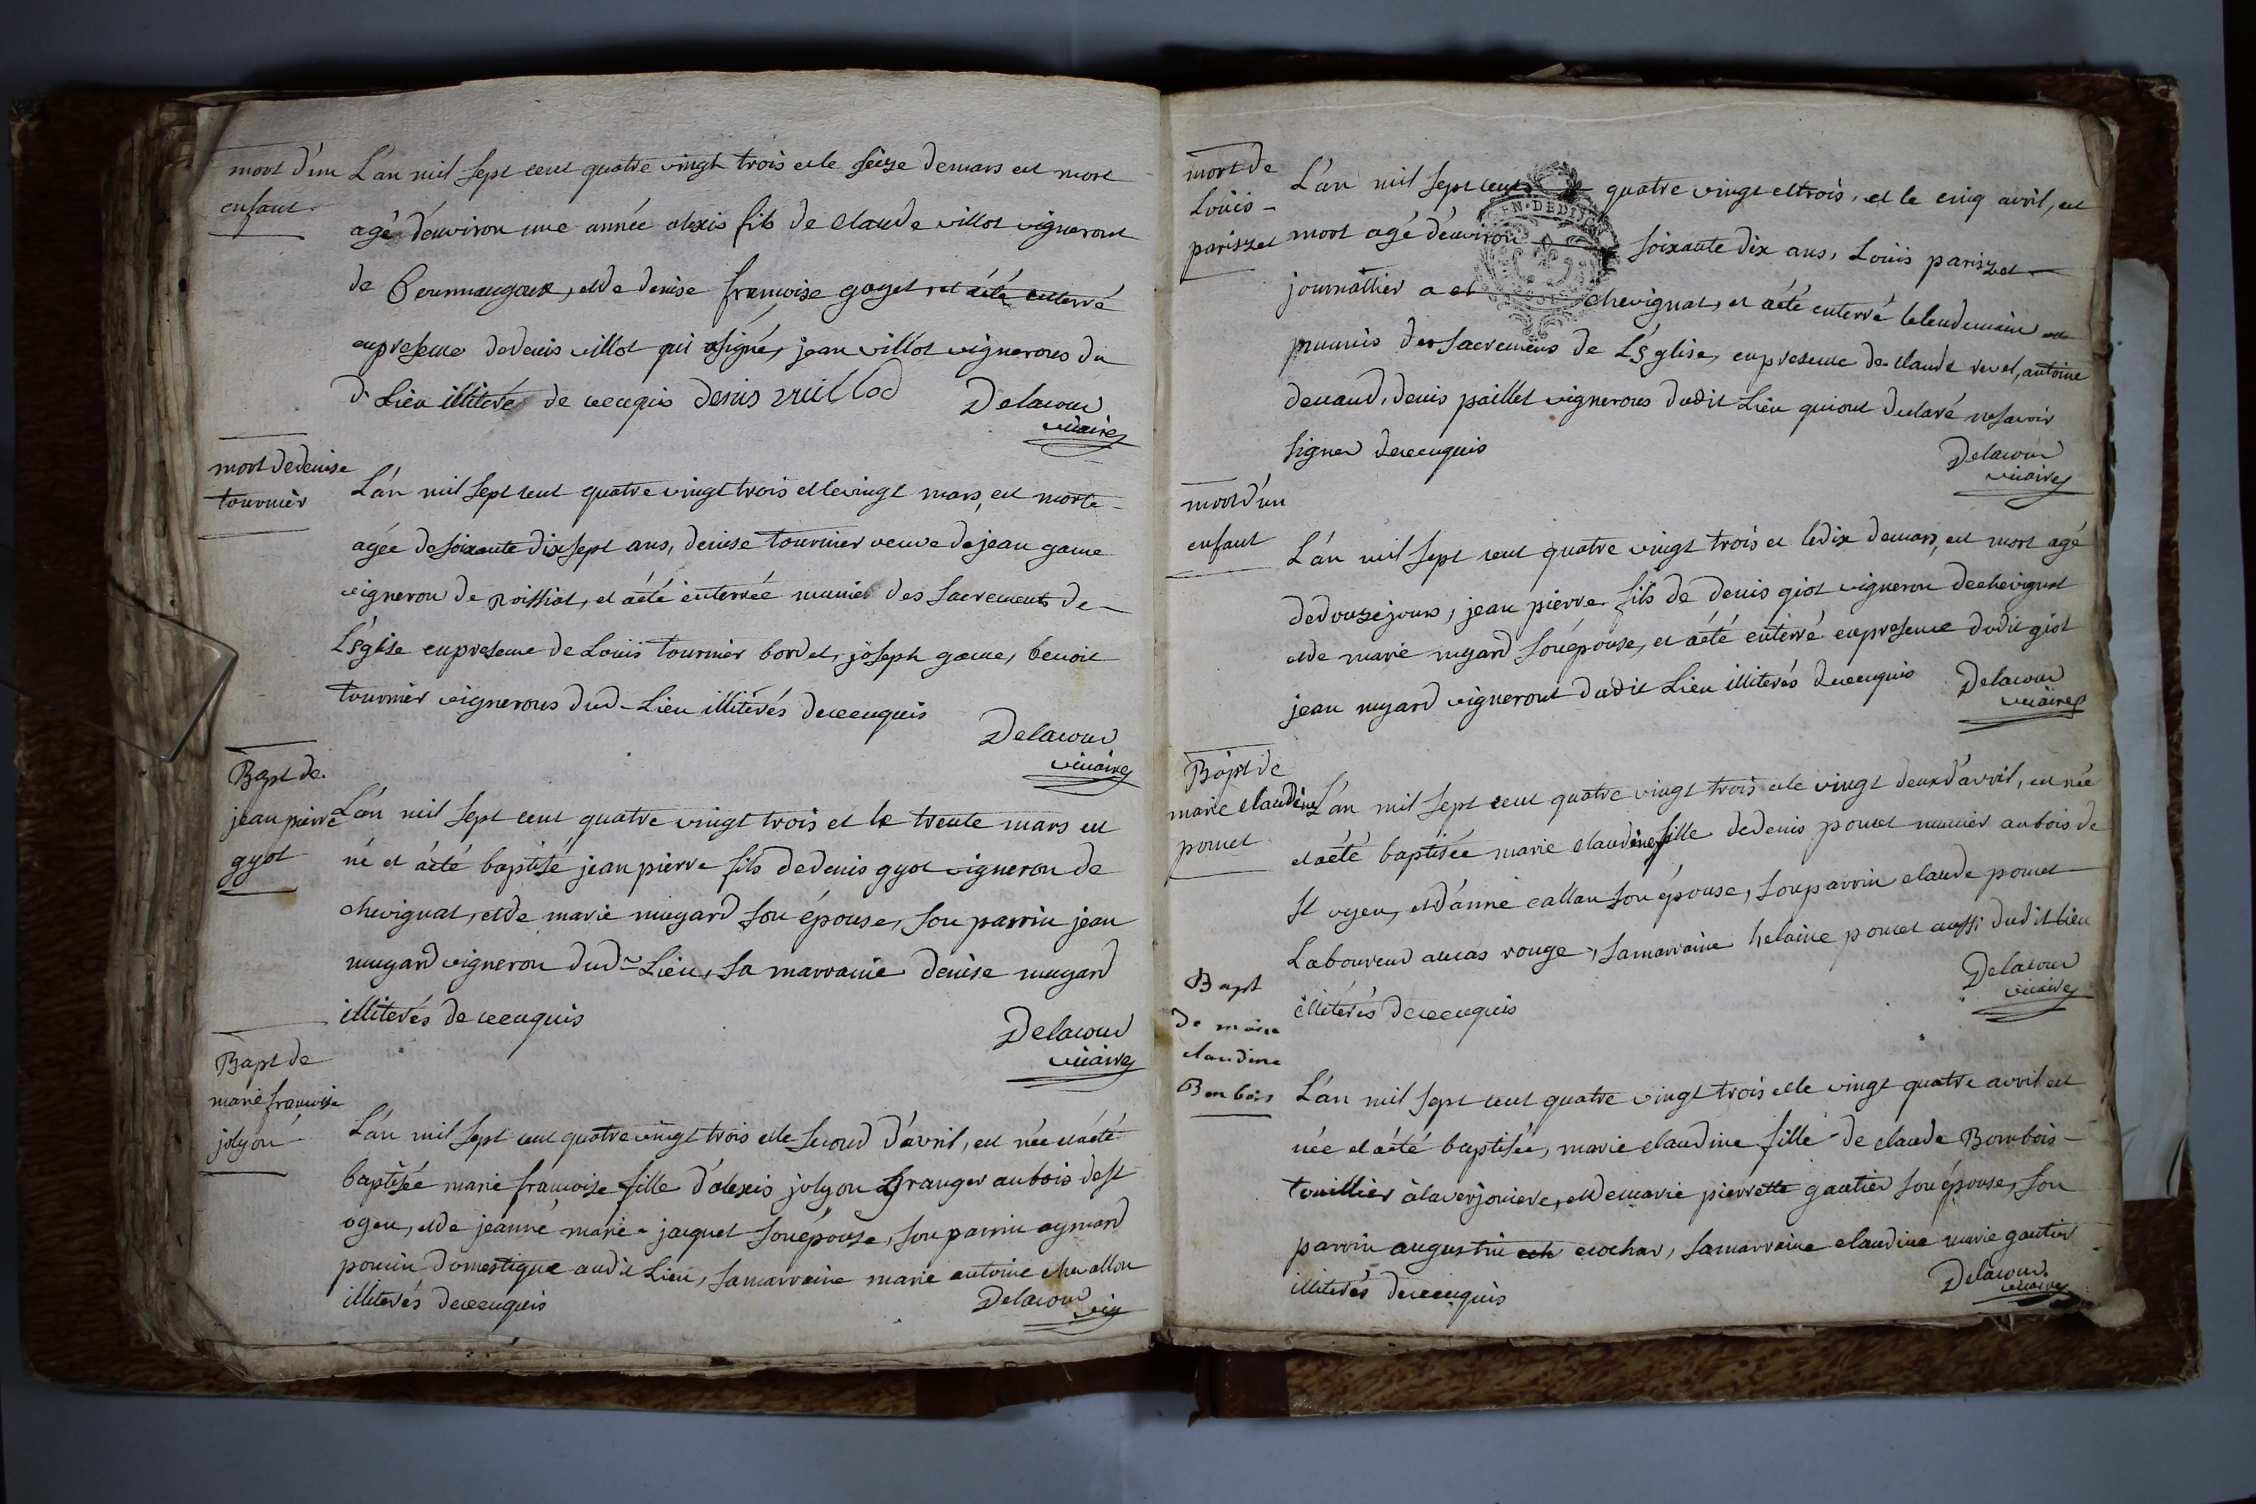 mort d'un
enfant
L'an mil sept cent quatre vingt trois et le seize de mars est mort
agé d'environ une année alexis fils de claude villot vigneront
de , et de denise françoise goget, et a été enterré
en presence de denis villot qui a signé, jean villot vignerons du
d. Lieu illiteré de ce enquis denis vuillod Delacour
vicaire
mort de denise
tournier
L'an mil sept cent quatre vingt trois et le vingt mars, est morte
agée de soixante dix sept ans, denise tournier veuve de jean game
vigneron de Roissiat, et a été enterrée munie des sacrements de
L'église en presence de Louis tournier bordet, joseph game, benoit
tournier vignerons dud. Lieu illiterés de ce enquis
Delacour
vicaire
Bapt de
jean pierre
gyot
L'an mil sept cent quatre vingt trois et le trente mars est
né et a été baptisé jean pierre fils de denis gyot vigneron de
chevignat, et de marie mugard son épouse, son parrin jean
mugard vigneron dud. Lieu, sa marraine denise mugard
illiterés de ce enquis
Delacour
vicaire
Bapt de
marie françoise
jolyon
L'an mil sept cent quatre vingt trois et le second d'avril, est née et a été
baptisée marie françoise fille d'alexis jolyon granger au bois de st
ogen, et de jeanne marie jacquet son épouse, son parrin aymard
poncin domestique audit Lieu, sa marraine marie antoine chevallon
illiterés de ce enquis
Delacour
vic
mort de
Louis
pariszet
L'an mil sept cent quatre vingt et trois, et le cinq avril, est
mort agé d'environ soixante dix ans, Louis pariszet
journallier a chevignat, et a été enterré le lendemain
munis des sacremens de L'église, en presence de claude revel, antoine
denand, denis paillet vignerons dudit Lieu qui ont declaré ne savoir
signer de ce enquis
Delacour
vicaire
mort d'un
enfant
L'an mil sept cent quatre vingt trois et le dix de mars, est mort agé
de douze jours, jean pierre fils de denis giot vigneron de chevignat
et de marie mugard son épouse, et a été enterré en presence dudit giot
jean mugard vigneront dudit Lieu illiterés de ce enquis
Delacour
vicaire
Bapt de
marie claudine
poncet
L'an mil sept cent quatre vingt trois et le vingt deux d'avril, est née
et a été baptisée marie claudine fille de denis poncet au bois de
st ogen, et d'anne callan son épouse, son parrin claude poncet
Laboureur au cas rouge, sa marraine helaine poncet aussi dudit lieu
illiterés de ce enquis
Delacour
vicaire
Bapt
de marie
claudine
Bonbois
L'an mil sept cent quatre vingt trois et le vingt quatre avril est
née et a été baptisée, marie claudine fille de claude Bombois
tuillier à la verjoniere, et de marie pierrette gautier son épouse, son
parrin augustin crochar, sa marraine claudine marie gautier
illiterés de ce enquis
Delacour
vicaire